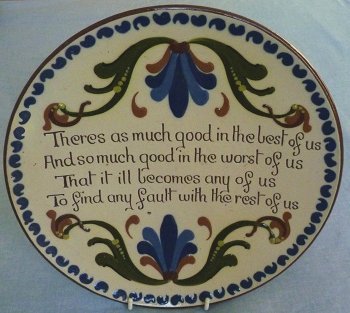 Theres as much good in the best of us
And so much good in the worst of us
That it ill becomes any of us
To find any fault with the rest of us